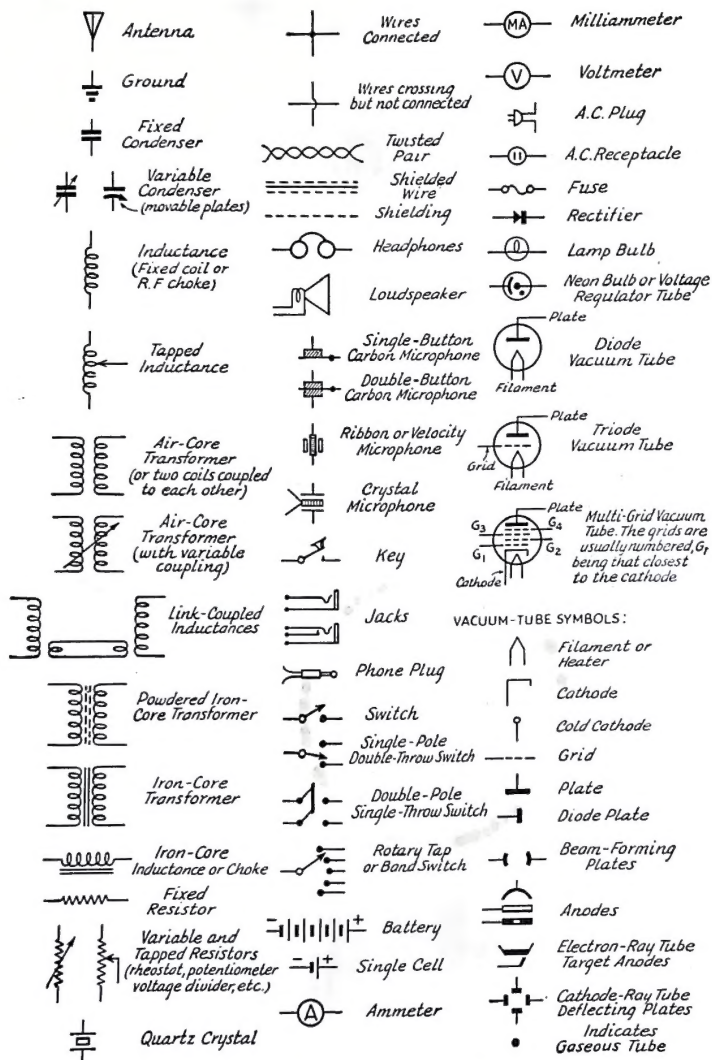 Antenna
Ground
Fixed
Condenser
Variable
Condenser
(movable plates)
Inductance
(Fixed coil or
R.F choke)
Tapped
Inductance
Air-Core
Transformer
(or two coils coupled
to each other)
Air-Core
Transformer
(with variable
coupling)
Link-Coupled
Inductances
Powdered Iron-
Core Transformer
Iron-Core
Transformer
Iron-Core
Inductance or Choke
Fixed
Resistor
Variable and
Tapped Resistors
(rheostat, potentiometer
voltage divider, etc.)
Quartz Crystal
Wires
Connected
Wires crossing
but not connected
Twisted
Pair
Shielded
Wire
Shielding
Headphones
Loudspeaker
Single-Button
Carbon Microphone
Double-Button
Carbon Microphone
Ribbon or Velocity
Microphone
Crystal
Microphone
Key
Jacks
Phone Plug
Switch
Single-Pole
Double-Throw Switch
Double-Pole
Single-Throw Switch
Rotary Tap
or Band Switch
- + Battery
- + Single Cell
A Ammeter
MA Milliammeter
V Voltmeter
A.C. Plug
A.C. Receptacle
Fuse
Rectifier
Lamp Bulb
Neon Bulb or Voltage
Regulator Tube
Plate
Diode
Vacuum Tube
Filament
Plate
Triode
Vacuum Tube
Grid
Filament
Plate
G3 G4
G1 G2
Cathode
Multi-Grid Vacuum
Tube. The grids are
usually numbered, G1
being that closest
to the cathode
VACUUM-TUBE SYMBOLS:
Filament or
Heater
Cathode
Cold Cathode
Grid
Plate
Diode Plate
Beam-Forming
Plates
Anodes
Electron-Ray Tube
Target Anodes
Cathode-Ray Tube
Deflecting Plates
Indicates
Gaseous Tube